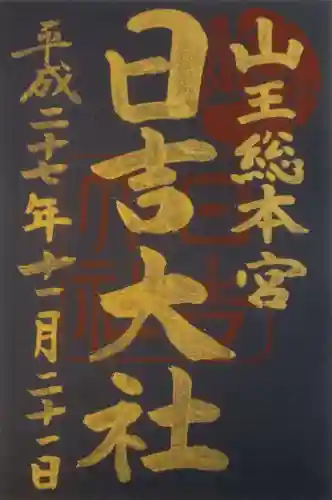 山王総本宮
日吉大社
平成二十七年十一月二十一日